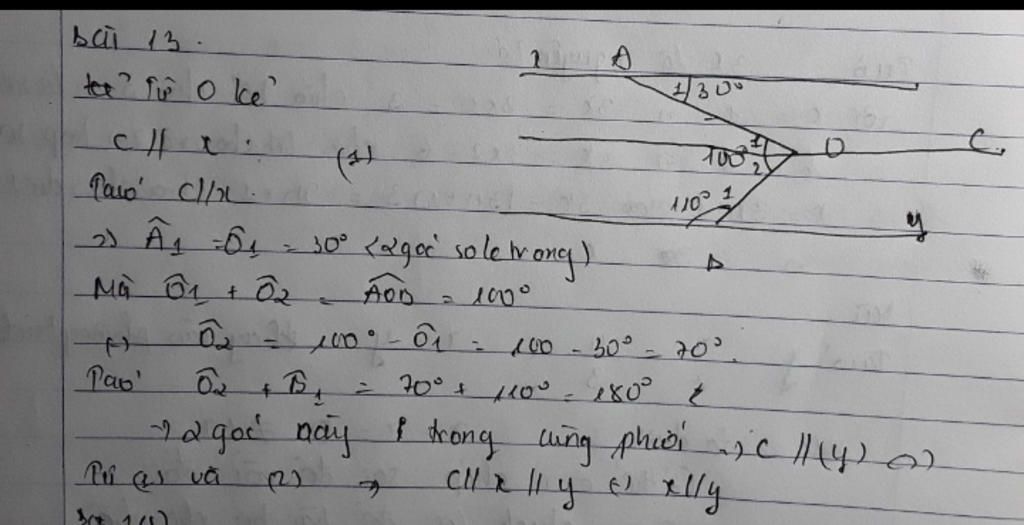 bài 13.
từ O kẻ
C // x. (1)
Ta có C//x.
=> Â1 = Ô1 = 30° (2 góc so le trong)
Mà Ô1 + Ô2 = AOD = 100°
Ô2 = 100° - Ô1 = 100 - 30° = 70°.
Ta có Ô2 + D̂1 = 70° + 110° = 180°
→ 2 góc này trong cùng phía => C // (y)
Từ (1) và (2) => C // x // y x//y
x A
1 30°
1 O C
100° 2
110° 1
y
D